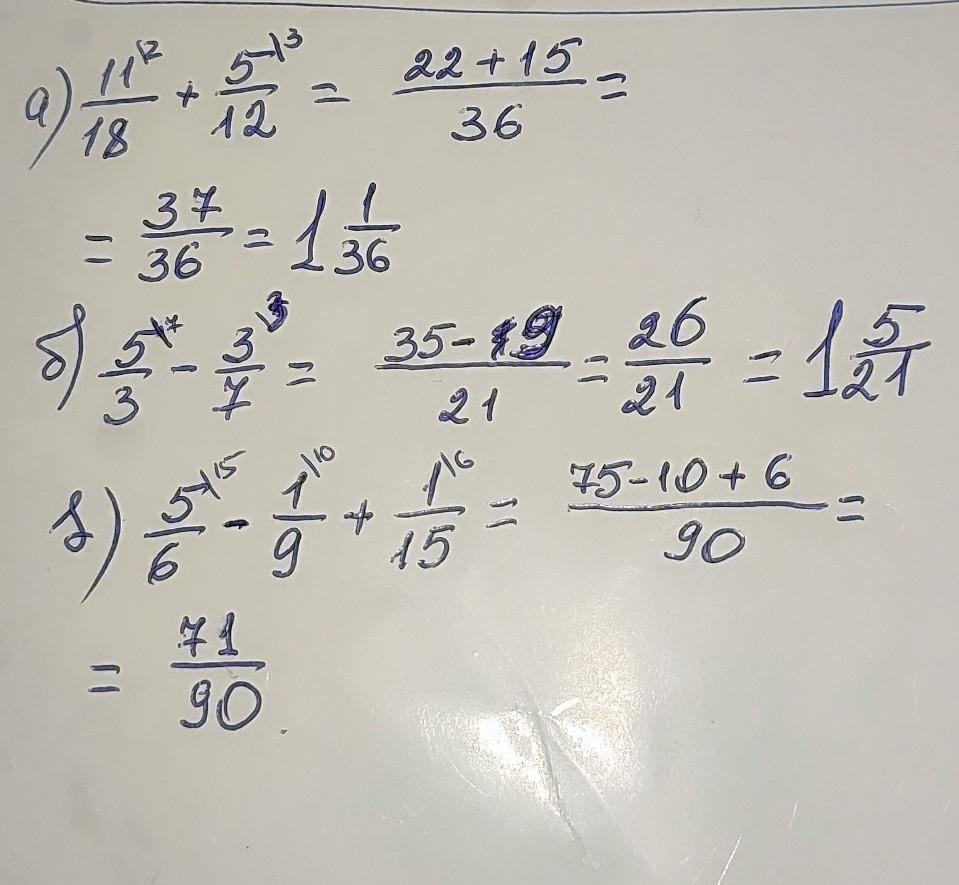 а) 11\2/18 + 5\3/12 = (22+15)/36 =
= 37/36 = 1 1/36
б) 5\7/3 - 3\3/7 = (35-9)/21 = 26/21 = 1 5/21
в) 5\15/6 - 1\10/9 + 1\6/15 = (75-10+6)/90 =
= 71/90.